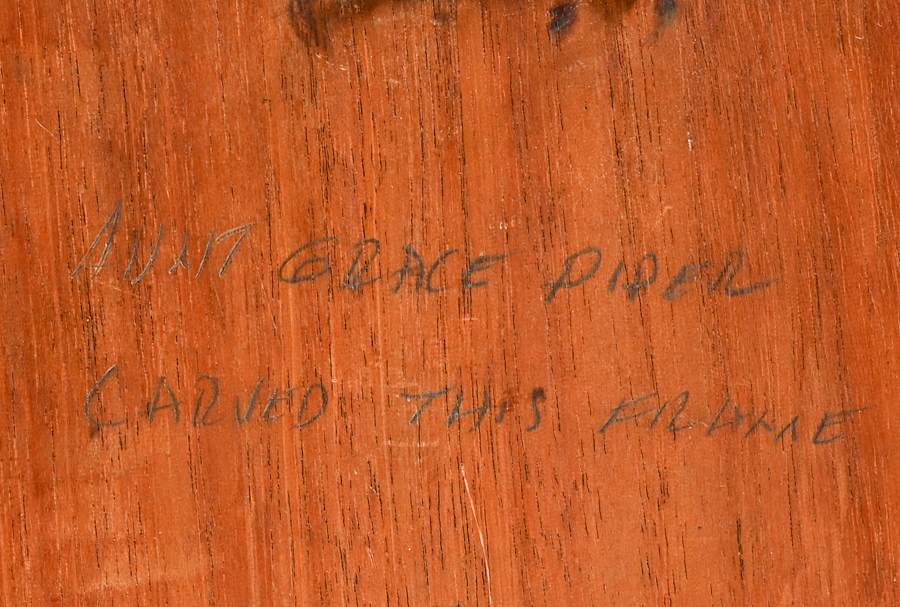 AUNT GRACE PIPER
CARVED THIS FRAME